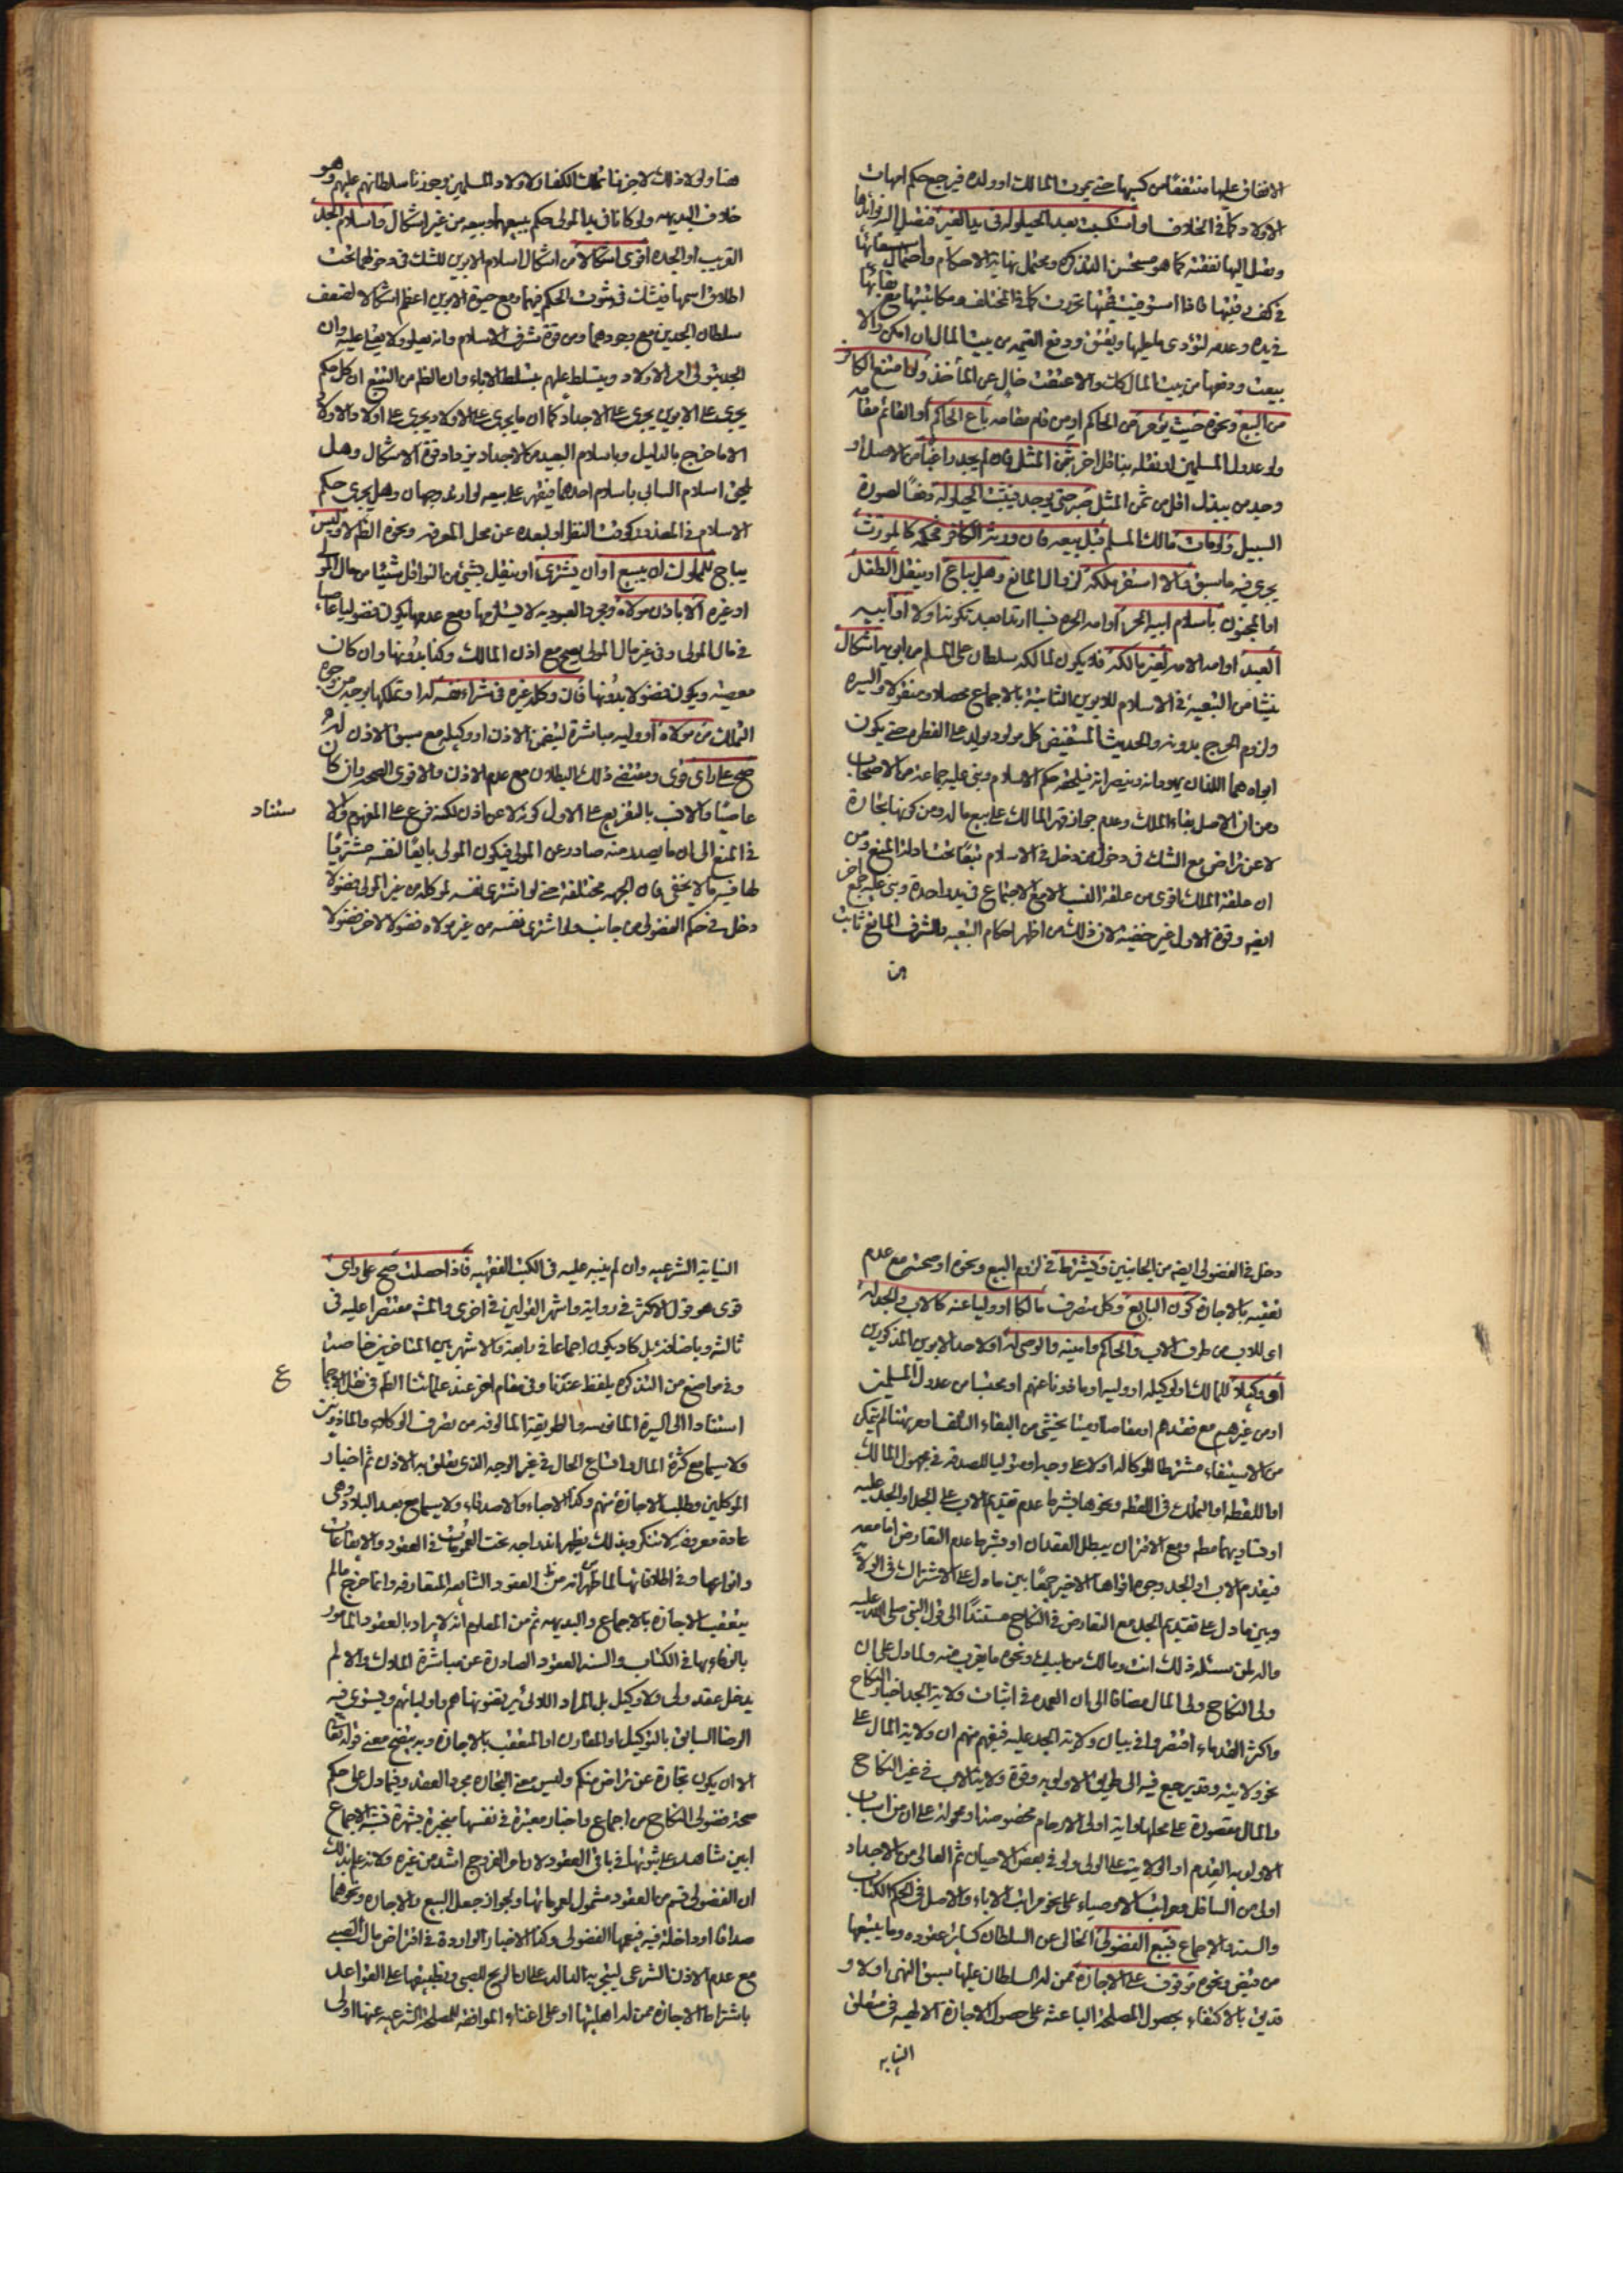 الانفاق عليها منفقًا من كسبها حتى يموت المالك او ولده فيرجع حكم امهات
الاولاد كما في الخلاف او استكسبت بعد الحيلولة في يد الغير فتفضل الزوايدها
ويصل اليها نفقته كما هو مستحسن التذكره ويحتمل نهاية الاحكام واحتمال استسعائها
في كفر قيمتها فاذا استوفيت قيمتها تحررت كما في المختلف ومكاتبتها مع بقائها
في يده وعدمه لتؤدى ما عليها وتعتق ودفع القيمة من بيت المال ان امكن والا
بيعت ودفعها من بيت المال كلت والا عتقت خال عن المأخذ ولو امتنع الكافر
من البيع ونحوه حيث يؤمر من الحاكم او من قام مقامه باع الحاكم او القائم مقامه
ولو عدول المسلمين او نقله بناقل اخر بثمن المثل فان لم يجد راغبًا من الاصل او
وجد من يبذل اقل من ثمن المثل صبر حتى يوجد فيثبت الحيلولة دفعًا لصورة
السبيل ولو مات مالك المسلم قبل بيعه فان ورثه الكافر فحكمه كالمورث
يجرى فيه ما سبق والا استقر ملكه لزوال المانع وهل يباع او ينقل الطفل
او المجنون باسلام ابيه الحر او امه الحرة فيما ارتدا بعد تكونه اولا او ابيه
العبد او امه الامه لغير مالكه فلا يكون لمالكه سلطان على المسلم من ابويه اشكال
ينشا من التبعية في الاسلام للابوين الثابتة بالاجماع محصلا ومنقولا والسيره
ولزوم الحرج بدونه والحديث المستفيض كل مولود يولد على الفطره حتى يكون
ابواه هما اللذان يهودانه وينصرانه فيلحقه حكم الاسلام وبنى عليه جماعة من الاصحاب
ومن ان الاصل بقاء الملك وعدم جواز قهر المالك على بيع ماله ومن كونها تجارة
لا عن تراض مع الشك في دخول من دخل في الاسلام تبعًا تحت ادلة المنع ومن
ان علقة الملك اقوى من علقة النسب الا مع الاجتماع في يد واحدة وبنى عليه جمع اخر
ايضا وقوة الاول غير خفية لان ذلك من اظهر احكام التبعيه والشرف المانع ثابت
هنا ولولا ذلك لاجزنا تملك الكفار لاولاد المسلمين وجوزنا سلطانهم عليهم وهو
خلاف البديهه ولو كانا في يد المولى حكم ببيعهما وبيعه من غير اشكال واسلام الجد
القريب او الجده اقوى اشكالا من اشكال اسلام الابوين للشك في دخولهما تحت
اطلاق اسمهما فيشك في ثبوت الحكم فيهما ومع حيوة الابوين اعظم اشكالا لضعف
سلطان الجدين مع وجودهما ومن قوة شرف الاسلام وانه يعلو ولا يعلى عليه وان
الجد يتولى امر الاولاد ويتسلط عليهم بتسلط الاباء وان الظاهر من التتبع ان كل حكم
يجرى على الابوين يجرى على الاجداد كما ان ما يجرى على الاولاد يجرى على اولاد الاولاد
الا ما خرج بالدليل وباسلام البعيد من الاجداد يزداد قوة الاشكال وهل
يلحق اسلام السابى باسلام احدهما فيقهر على بيعه لوارتد وجهان وهل يجرى حكم
الاسلام في المعذور كوقت النظر او لبعده عن محل المعرفه ونحوه الظاهر لا وليس
يباح للمملوك ان يبيع او ان يشترى او ينقل بشئ من النواقل شيئا من مال المولى
او غيره الا باذن مولاه ومجرد العبوديه لا يستلزمها ومع عدمها يكون فضوليا عاصيا
في مال المولى وفي غير مال المولى يصح مع اذن المالك وكذا بدونها وان كان
معصية ويكون فضولا بدونها فان وكله غيره في شراء نفسه له او تملكها بوجه من وجوه
التملك من مولاه او وليه مباشرة ليضمن الاذن او وكيله مع سبق الاذن له
صح على راى قوى ومقتضى ذلك البطلان مع عدم الاذن والاقوى الصحه وان كان
عاصيًا والانسب بالتفريع على الاول كونه لا عن اذن لكنه فرع على المفهوم ولا
سناد
في المنع الى ان ما يصدر منه صادر عن المولى فيكون المولى بايعًا لنفسه مشتريًا
لها فيه ما لا يخفى فان الجهه مختلفة حتى لو اشترى نفسه لموكله من غير المولى فضولا
دخل في حكم الفضولى من جانب ولو اشترى نفسه من غير مولاه فضولا لاخر فضولا
دخل في الفضولى ايضا من الجانبين ويشترط في لزوم البيع ونحوه او صحته مع عدم
تعقبه بالاجازة كون البايع وكل متصرف مالكا او وليا عنه كالاب والجد له
اى للاب من طرف الاب والحاكم وامينه والوصى له او لاحد الابوين المذكورين
او وكيلا للمالك او لوكيله او وليه او ماذونا عنهم او محتسبا من عدول المسلمين
او من غيرهم مع فقدهم او مقاصا فيما يخشى من البقاء التلف او مرتهنا لم يتمكن
من الاستيفاء مشترطا للوكاله اولا على وجه او متوليا للصدقه في مجهول المالك
او اللقطه او التملك في اللقطه ونحوها بشرط عدم تقديم الاب على الجد او الجد عليه
او تساويهما مطلقا ومع الاقتران يبطل العقدان او بشرط عدم التعارض اما معه
فيقدم الاب او الجد وجوه اقواها الاخير جمعًا بين ما دل على الاشتراك في الولاية
وبين ما دل على تقديم الجد مع التعارض في النكاح مستندًا الى قول النبى صلى الله عليه
واله لمن سئله ذلك انت ومالك من ابيك ونحوه ما يقرب منه ولما دل على ان
ولى النكاح ولى المال مضافا الى ان العمده في اثبات ولاية الجد اخبار النكاح
واكثر الفقهاء اقتصروا في بيان ولاية الجد عليه فيفهم منهم ان ولاية المال على
نحو ولايته وقد يرجع فيه الى طريق الاولويه وقوة ولاية الاب في غير النكاح
والمال مقصورة على محلها واية اولى الارحام مخصوصة او محموله على ان من اسباب
الاولويه القدم او الولاية على الولى ولو في بعض الاحيان ثم العالى من الاجداد
اولى من السافل ومراتب الاوصياء على نحو مراتب الاباء والاصل في الحكم الكتاب
والسنه والاجماع فبيع الفضولى الخالى عن السلطان كساير عقوده وما يتبعها
من قبض ونحوه موقوف على الاجازة ممن له السلطان عليها سبق النهى اولا و
قد يق بالاكتفاء بحصول المصلحة الباعثة على حصول الاجازة الالهيه في متعلق
النيابه
النيابة الشرعيه وان لم ينبه عليه في الكتب الفقهيه فاذا حصلت صح على راى
قوى هو قول الاكثر في رواية واشهر القولين في اخرى والمشهور مقتصرا عليه في
ثالثه وباضافة بل كاد يكون اجماعا في رابعة والاشهر بين المتاخرين خاصة
وفي مواضع من التذكره بلفظ عندنا وفي مقام اخر عند علمائنا الظاهر في نقل الاجماع
استنادا الى السيرة المانوسه والطريقة المالوفه من تصرف الوكلاء والماذونين
ولا سيما مع كثرة المال واتساع الحال في غير الوجه الذى تعلق به الاذن ثم اخبار
الموكلين وطلب الاجازة منهم وكذا الاحباء والاصدقاء ولا سيما مع بعد البلاد وهى
عادة معروفه لا تنكر وبذلك يظهر اندراجه تحت العمومات في العقود والايقاعات
وانواعها وفي اطلاقاتها لما ظهر انه من العقود الشايعه المتعارفه وانما خرج ما لم
يتعقب الاجازة بالاجماع والبديهه ثم من المعلوم انه لا يراد بالعقود المامور
بالوفاء بها في الكتاب والسنه العقود الصادرة عن مباشرة الملاك والا لم
يدخل عقد ولى ولا وكيل بل المراد اللاتى يرتضونها هم واوليائهم ويستوى فيه
الرضا السابق بالتوكيل او المقارن او المتعقب بالاجازة وبه يتضح معنى قوله تعالى
الا ان يكون تجارة عن تراض منكم وليس معنى التجارة مجرد العقد وفيما دل على حكم
صحة فضولى النكاح من اجماع واخبار معتبرة في نفسها منجبرة بشهرة قريبة الاجماع
ابين شاهد على ثبوتها في باقى العقود لان امر الفروج اشد من غيره ولانه علم بذلك
ان الفضولى قسم من العقود مشمول لعموماتها وبجواز جعل البيع والاجاره ونحوهما
صداقا او داخلة فيه فيعمها الفضولى وكذا الاخبار الواردة في اقتراض مال الصبى
مع عدم الاذن الشرعى ليتجر به الدالة على ان الربح للصبى وتطبيقها على القواعد
باشتراط الاجازه ممن له اهليتها او على اغناء الموافقه للمصلحة الشرعيه عنها اولى